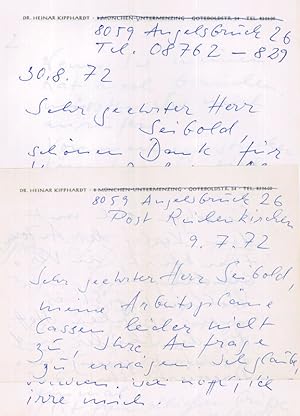 DR. HEINAR KIPPHARDT · 8 MÜNCHEN-UNTERMENZING · GOTEBOLDSTR. 54 · TEL.
8059 Angelsbruck 26
Tel. 08762 – 829
30.8.72
Sehr geehrter Herr
Seibold,
schönen Dank für
DR. HEINAR KIPPHARDT · 8 MÜNCHEN-UNTERMENZING · GOTEBOLDSTR. 54 · TEL.
8059 Angelsbruck 26
Post
9.7.72
Sehr geehrter Herr Seibold,
meine Arbeitspläne
lassen leider nicht
zu, Ihre Anfrage
zu
irre mich.